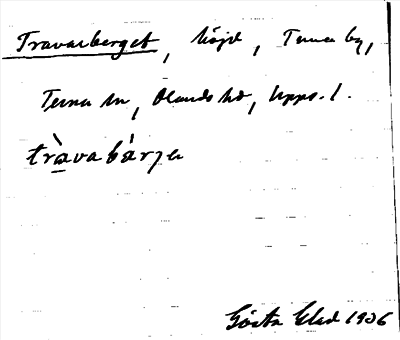 Travarberget, höjd, Tuna by,
Tuna sn, Olands hd, Upps. l.
tràvabárja
Gösta Eled 1906